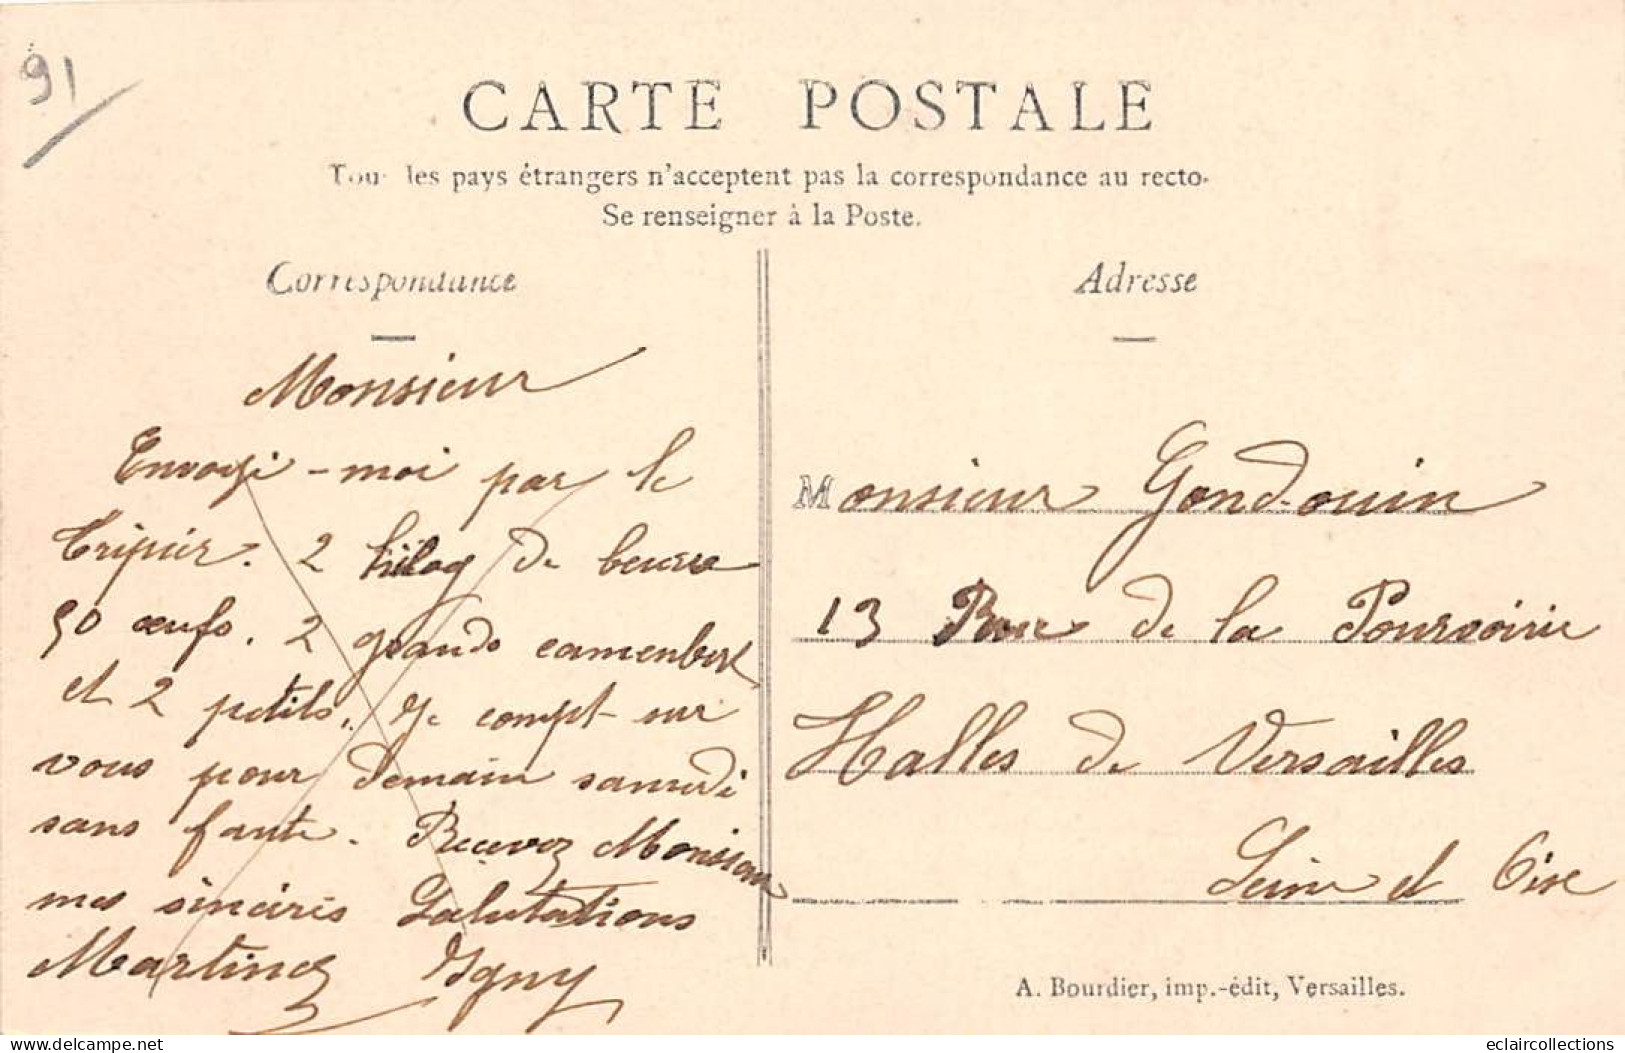 91
CARTE POSTALE
Tous les pays étrangers n'acceptent pas la correspondance au recto.
Se renseigner à la Poste.
Correspondance
Monsieur
Envoyé-moi par le
tripier. 2 kilog de beurre
50 œufs. 2 grands camenbert
et 2 petits. Je compt-sur
vous pour demain samedi
sans faute. Recevez Monsieur
mes sincères Salutations
Martinez Igny
Adresse
Monsieur Gondouin
13 Rue de la Pourvoirie
Halles de Versailles
Seine et Oise
A. Bourdier, imp.-édit, Versailles.
delcampe.net
eclaircollections